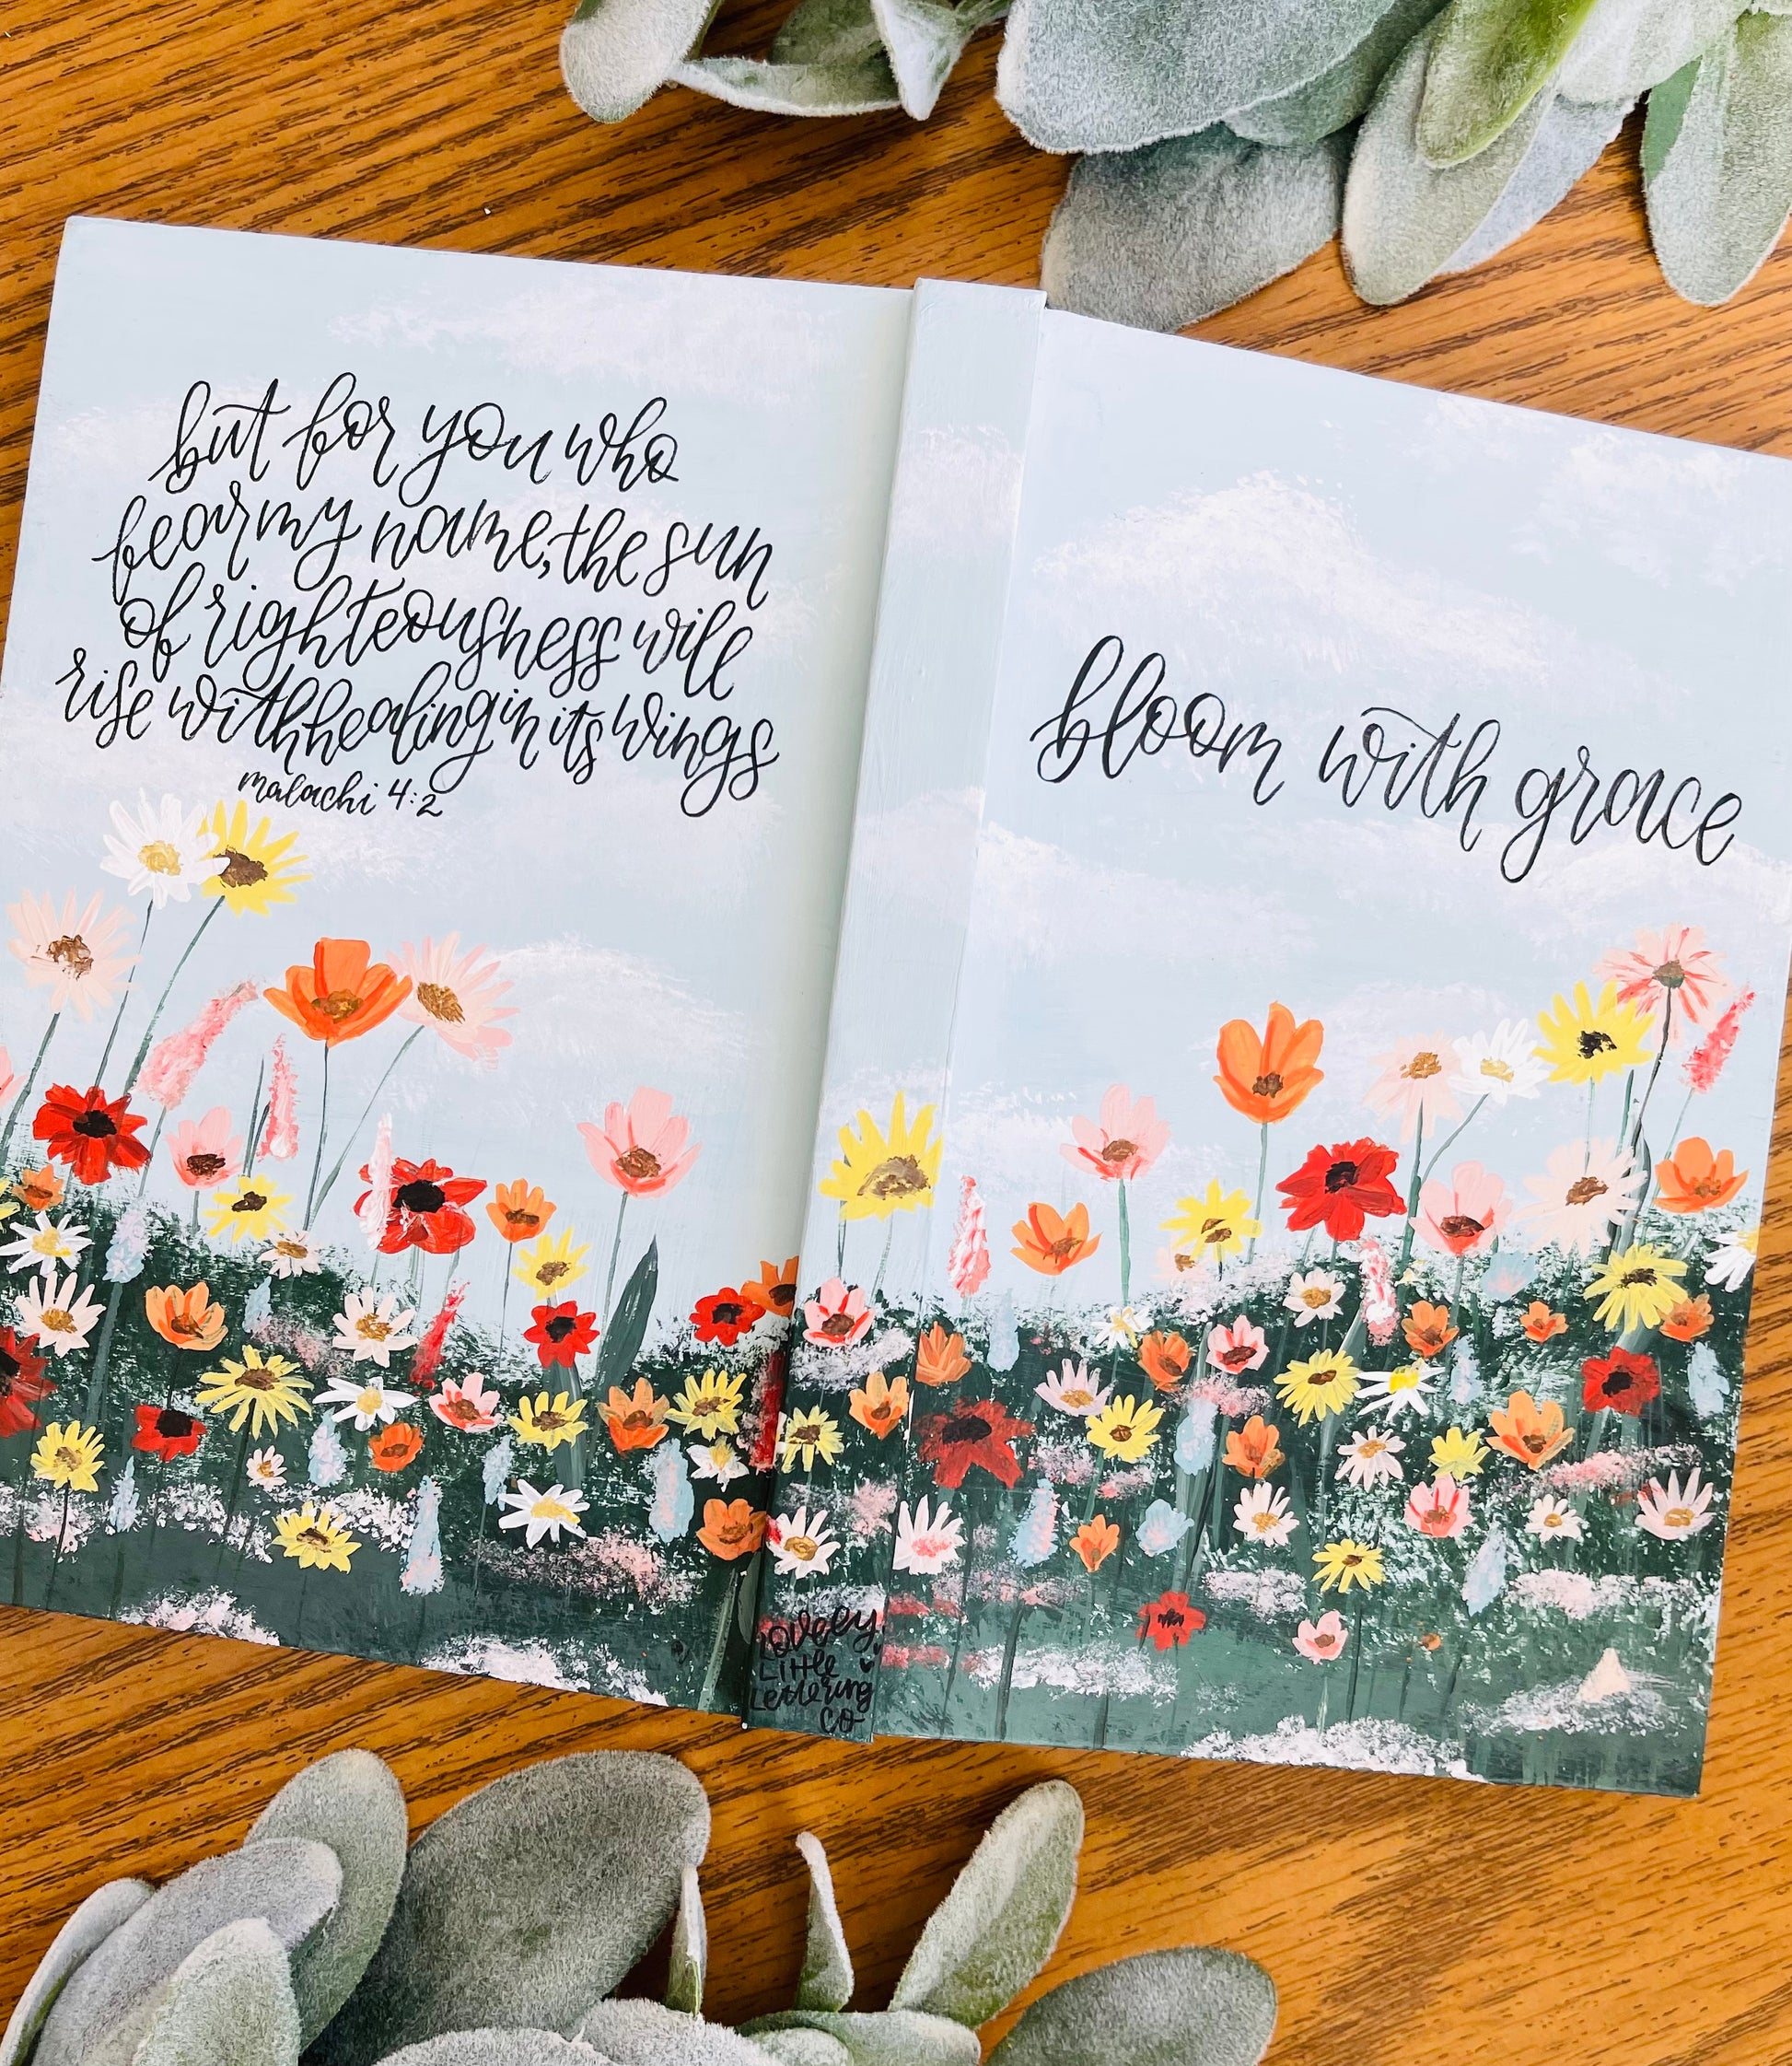 but for you who
fear my name, the sun
of righteousness will
rise with healing in its wings
malachi 4:2
bloom with grace
Lovely
Little
Lettering
co